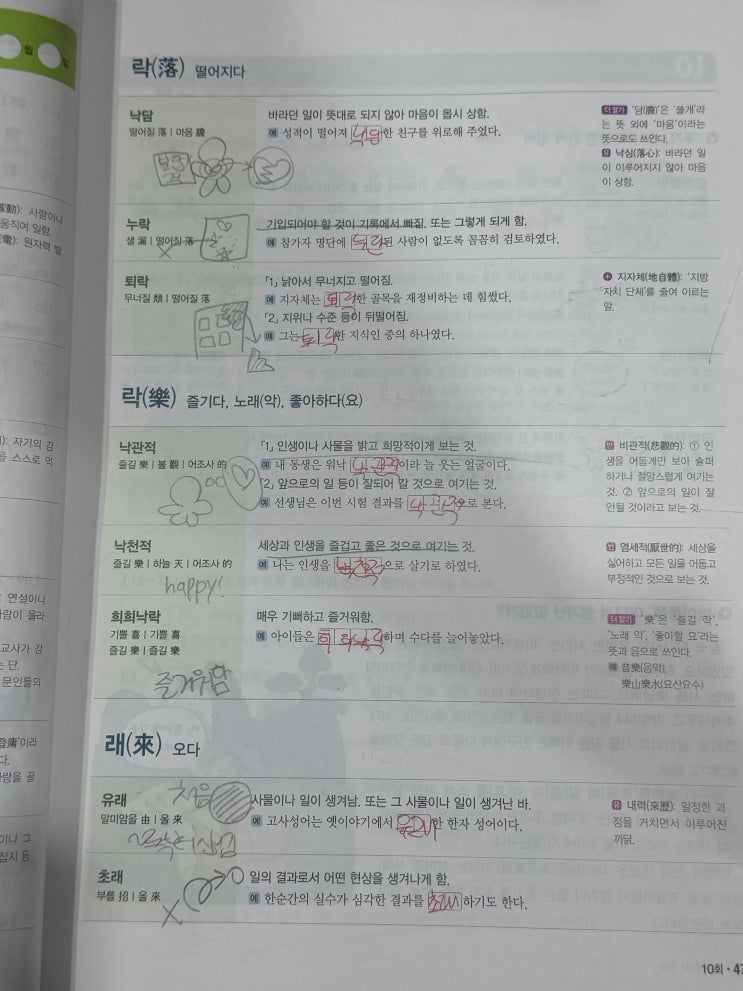 월 일
락(落) 떨어지다
낙담
떨어질 落 | 마음 膽
바라던 일이 뜻대로 되지 않아 마음이 몹시 상함.
예 성적이 떨어져 낙담한 친구를 위로해 주었다.
더 알기 '담(膽)'은 '쓸개'라
는 뜻 외에 '마음'이라는
뜻으로도 쓰인다.
유 낙심(落心): 바라던 일
이 이루어지지 않아 마음
이 상함.
누락
샐 漏 | 떨어질 落
기입되어야 할 것이 기록에서 빠짐. 또는 그렇게 되게 함.
예 참가자 명단에 누락된 사람이 없도록 꼼꼼히 검토하였다.
퇴락
무너질 頹 | 떨어질 落
「1」 낡아서 무너지고 떨어짐.
예 지자체는 퇴락한 골목을 재정비하는 데 힘썼다.
「2」 지위나 수준 등이 뒤떨어짐.
예 그는 퇴락한 지식인 중의 하나였다.
+ 지자체(地自體): '지방
자치 단체'를 줄여 이르는
말.
락(樂) 즐기다, 노래(악), 좋아하다(요)
낙관적
즐길 樂 | 볼 觀 | 어조사 的
「1」 인생이나 사물을 밝고 희망적이게 보는 것.
예 내 동생은 워낙 낙관적이라 늘 웃는 얼굴이다.
「2」 앞으로의 일 등이 잘되어 갈 것으로 여기는 것.
예 선생님은 이번 시험 결과를 낙관적으로 본다.
반 비관적(悲觀的): ① 인
생을 어둡게만 보아 슬퍼
하거나 절망스럽게 여기는
것. ② 앞으로의 일이 잘
안될 것이라고 보는 것.
낙천적
즐길 樂 | 하늘 天 | 어조사 的
happy!
세상과 인생을 즐겁고 좋은 것으로 여기는 것.
예 나는 인생을 낙천적으로 살기로 하였다.
반 염세적(厭世的): 세상을
싫어하고 모든 일을 어둡고
부정적인 것으로 보는 것.
희희낙락
기쁠 喜 | 기쁠 喜
즐길 樂 | 즐길 樂
즐거워함
매우 기뻐하고 즐거워함.
예 아이들은 희희낙락하며 수다를 늘어놓았다.
더 알기 '樂'은 '즐길 락',
'노래 악', '좋아할 요'라는
뜻과 음으로 쓰인다.
예 音樂(음악),
樂山樂水(요산요수)
래(來) 오다
유래
말미암을 由 | 올 來
처음
사물이나 일이 생겨남. 또는 그 사물이나 일이 생겨난 바.
예 고사성어는 옛이야기에서 유래한 한자 성어이다.
유 내력(來歷): 일정한 과
정을 거치면서 이루어진
까닭.
초래
부를 招 | 올 來
일의 결과로서 어떤 현상을 생겨나게 함.
예 한순간의 실수가 심각한 결과를 초래하기도 한다.
10회 • 47